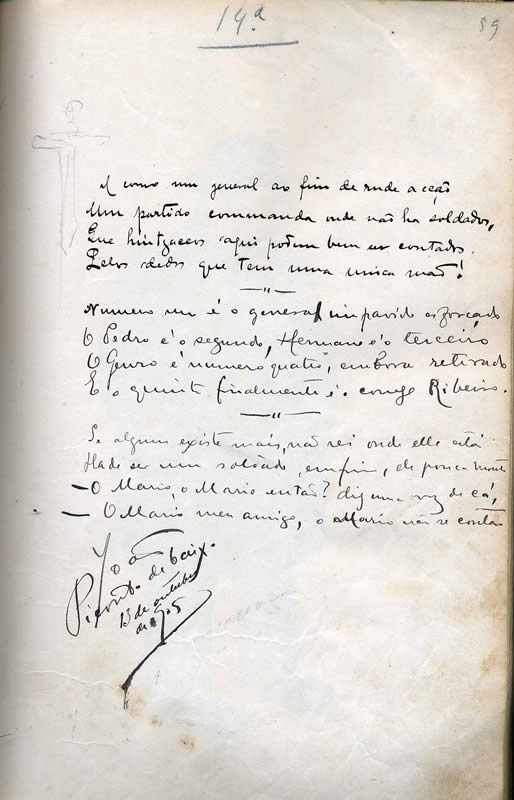 14ª
59
É como um general ao fim de rude acção
Um partido commanda onde não ha soldados,
Que hintzaceos aqui podem bem ser contados
Pelos dedos que tem uma unica mão!
—"—
Numero um é o general impavido esforçado
O Pedro é o segundo, Hermano é o terceiro
O Genro é numero quatro, embora retirado
E o quinto finalmente é o conego Ribeiro.
—"—
Se algum existe mais, não sei onde elle está
Hade ser um soldado, emfim, de pouca monta
— O Mario, o Mario então? diz uma voz de cá,
— O Mario meu amigo, o Mario não se conta
João
de
13 de outubro
de 1905